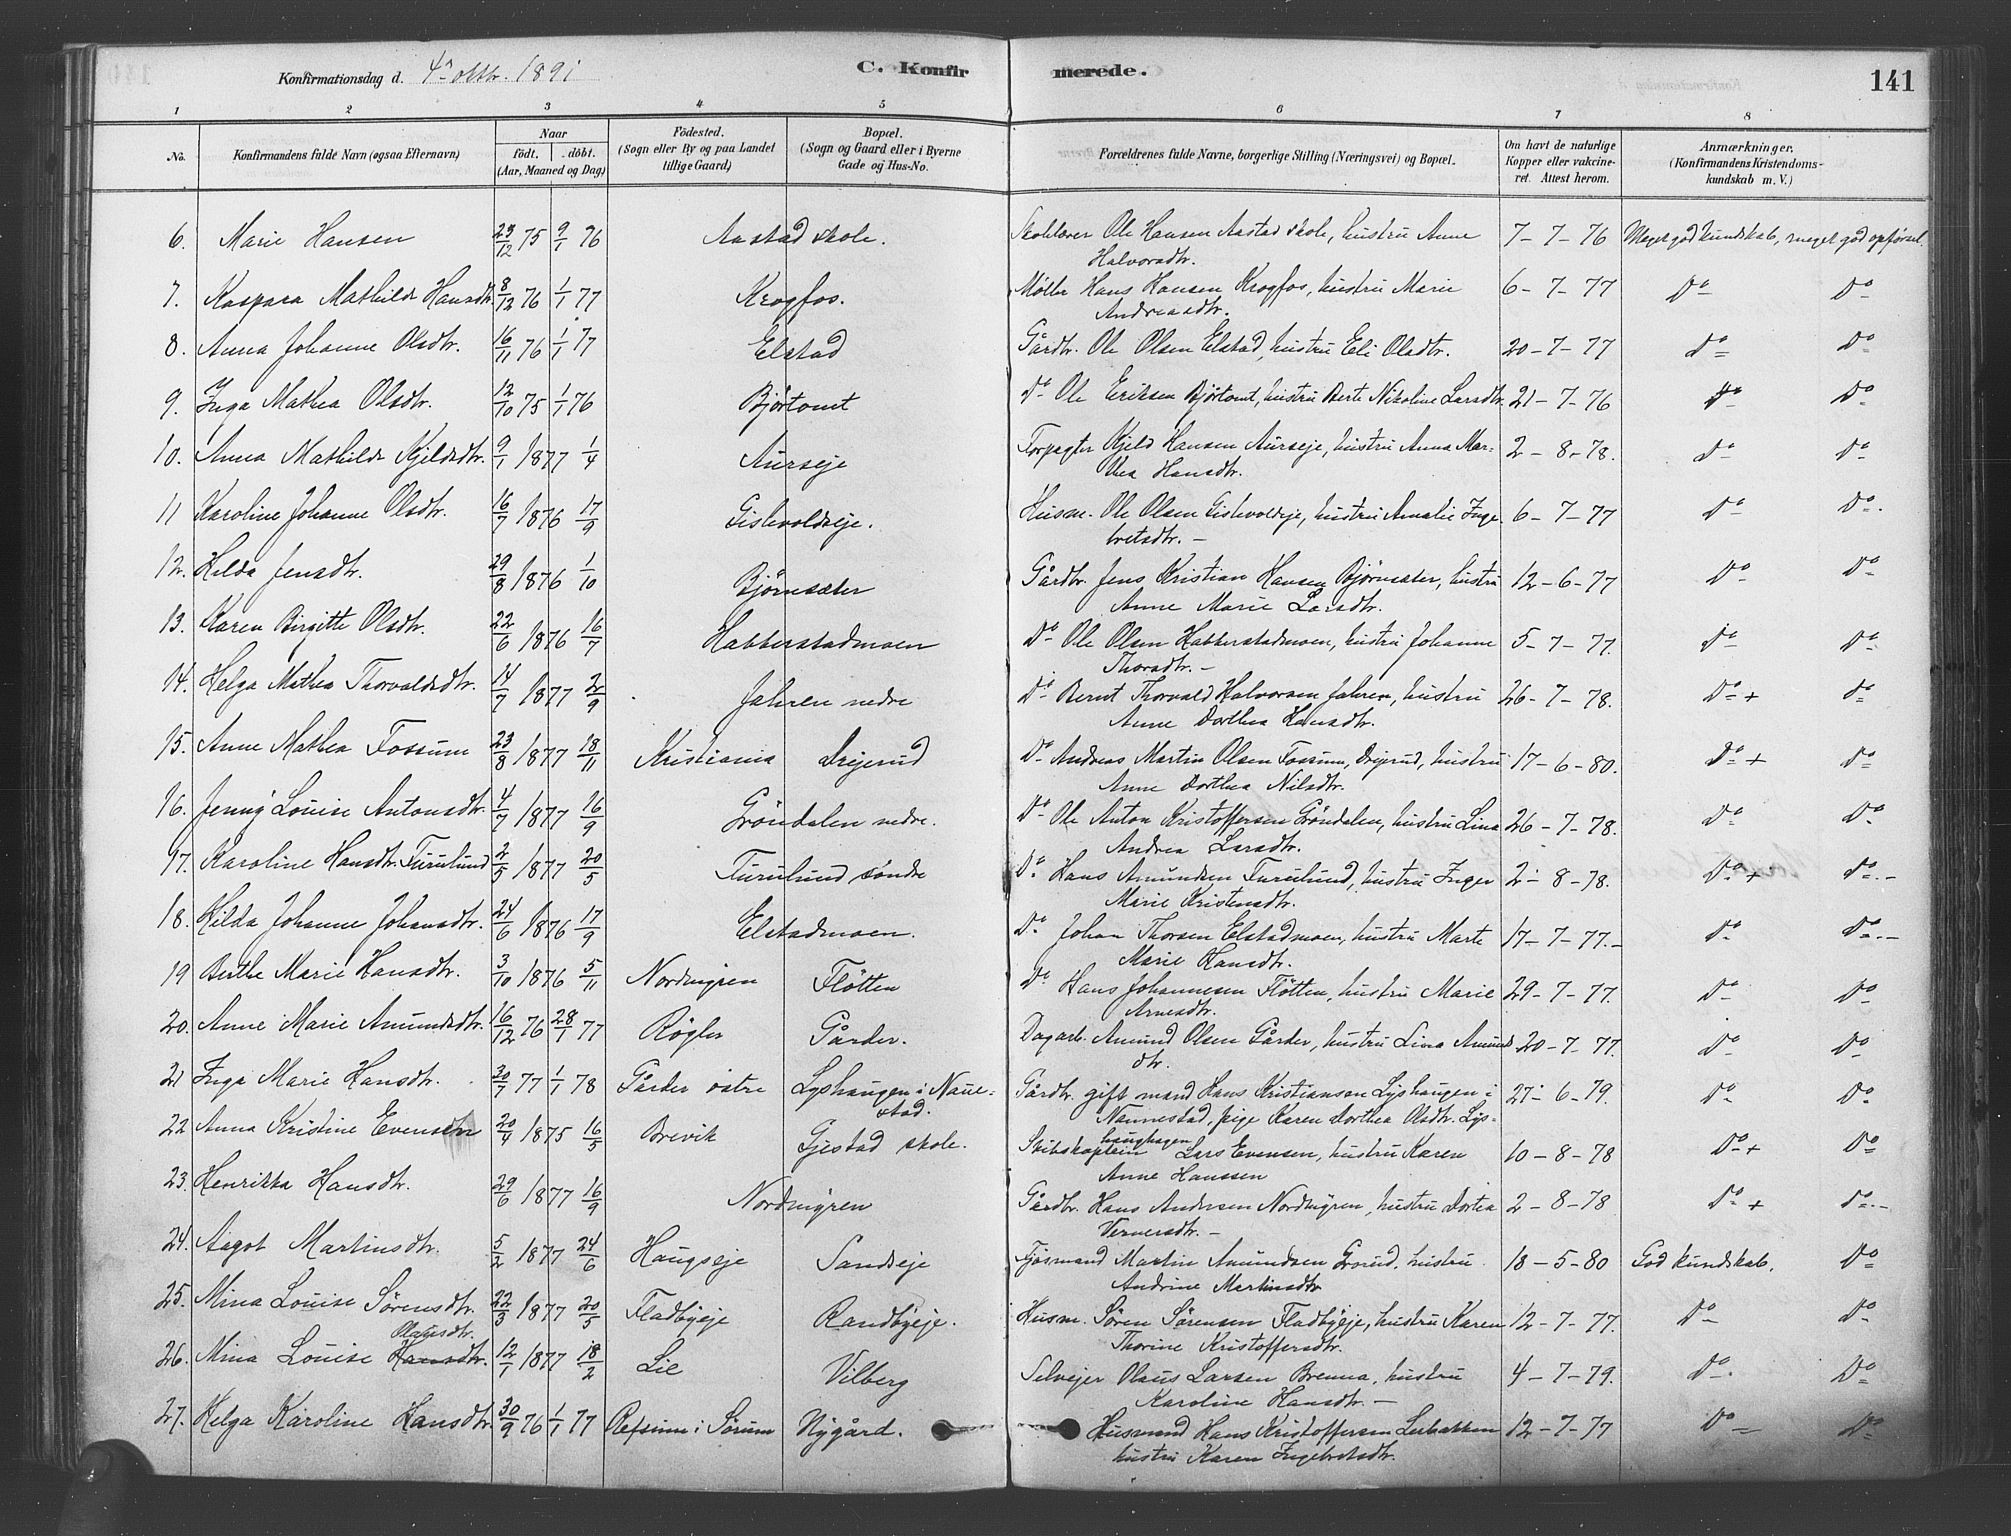 Konfirmationsdag d. 4de oktbr. 1891 C. Konfirmerede. 141
1 2 3 4 5 6 7 8
No. Konfirmandens fulde Navn (ogsaa Efternavn) Naar født. døbt. (Aar, Maaned og Dag) Fødested. (Sogn eller By og paa Landet tillige Gaard) Bopæl. (Sogn og Gaard eller i Byerne Gade og Hus-No. Forældrenes fulde Navne, borgerlige Stilling (Næringsvei) og Bopæl. Om havt de naturlige Kopper eller vakcineret. Attest herom. Anmærkninger. (Konfirmandens Kristendomskundskab m. V.)
6. Marie Hansen 23/12 75 9/1 76 Aastad skole. Skolelærer Ole Hansen Aastad skole, hustru Anne 7-7-76 Meget god kundskab, meget god opførsel.
Halvorsdtr.
7. Kaspara Mathilde Hansdtr. 8/12 76 1/1 77 Krogfos. Møller Hans Hansen Krogfos, hustru Marie 6-7-77 Do Do
Andreasdtr.
8. Anna Johanne Olsdtr. 16/11 76 1/1 77 Elstad Gårdbr. Ole Olsen Elstad, hustru Eli Olsdtr. 20-7-77 Do Do
9. Inga Mathea Olsdtr. 12/10 75 1/1 76 Bjørtomt Do Ole Eriksen Bjørtomt, hustru Berte Nikoline Larsdtr. 21-7-76 Do Do
10. Anna Mathilde Kjeldsdtr. 9/1 1877 1/4 Aurseje Forpagter Kjeld Hansen Aurseje, hustru Anna Mar- 2-8-78. Do Do
thea Hansdtr.
11 Karoline Johanne Olsdtr. 16/7 1876 17/9 Gislevoldseje. Husm. Ole Olsen Gislevoldseje, hustru Amalie Inge- 6-7-77 Do Do.
bretsdtr. -
12. Hilda Jensdtr. 29/8 1876 1/10 Bjørnsæter Gårdbr. Jens Kristian Hansen Bjørnsæter, hustru 12-6-77 Do Do
Anne Marie Larsdtr.
13. Karen Birgitte Olsdtr. 22/6 1876 16/7 Habberstadmoen Do Ole Olsen Habberstadmoen, hustru Johanne 5-7-77. Do Do
Thorsdtr. -
14. Helga Mathea Thorvaldsdtr. 14/7 1877 2/9 Jahren nedre Do Bernt Thorvald Halvorsen Jahren, hustru 26-7-78. Do + Do
Anne Dorthea Hansdtr.
15. Anne Mathea Fossum 23/8 1877 18/11 Kristiania Drijerud Do Andreas Martin Olsen Fossum, Drijerud, hustru 17-6-80. Do + Do
Anne Dorthea Nilsdtr.
16. Jenny Louise Antonsdtr. 4/7 1877 16/9 Grøndalen nedre. Do Ole Anton Kristoffersen Grøndalen, hustru Lina 26-7-78. Do Do
Andrea Larsdtr.
17. Karoline Hansdtr. Furulund 2/5 1877 20/5 Furulund søndre Do Hans Amundsen Furulund, hustru Inger 2-8-78. Do + Do.-
Marie Kristensdtr.
18. Hilda Johanne Johansdtr. 24/6 1876 17/9 Elstadmoen. Do Johan Thorsen Elstadmoen, hustru Marte 17-7-77.- Do Do.-
Marie Hansdtr.
19 Berthe Marie Hansdtr. 3/10 1876 5/11 Nordmyren Fløtten Do Hans Johannesen Fløtten, hustru Marie 29-7-77. Do Do
Arnesdtr.
20. Anne Marie Amundsdtr. 16/12 76 28/1 77 Røgler Gårder. Dagarb. Amund Olsen Gårder, hustru Lina Amunds 20-7-77. Do Do
dtr.
21 Inga Marie Hansdtr. 30/7 77 1/1 78 Gårder østre Lyshaugen i Nanne- Gårdbr. gift mand Hans Kristiansen Lyshaugen i 27-6-79. Do Do
stad. Nannestad, pige Karen Dorthea Olsdtr. Lys-
haughagen
22 Anna Kristine Evensen 20/4 1875 16/5 Brevik Gjestad skole. Skibskaptein Lars Evensen, hustru Karen 10-8-78 Do + Do
Anne Hanssen
23. Henrikka Hansdtr. 29/6 1877 16/9 Nordmyren Gårdbr. Hans Andersen Nordmyren, hustru Dortea 2-8-78 Do + Do.-
Vernersdtr. -
24. Aagot Martinsdtr. 5/2 1877 24/6 Haugseje Sandseje Fjøsmand Martin Amundsen Grorud, hustru 18-5-80 God kundskab. Do
Andrine Martinsdtr.
25. Mina Louise Sørensdtr. 22/3 1877 20/5 Fladbyeje Randbyeje. Husm. Søren Sørensen Fladbyeje, hustru Karen 12-7-77. Do Do
Thorine Kristoffersdtr.
Olausdtr.
26. Mina Louise Hansdtr. 12/1 1877 18/2 Lie Vilberg Selvejer Olaus Larsen Brenna, hustru 4-7-79. Do Do
Karoline Hansdtr. -
27. Helga Karoline Hansdtr. 30/9 76 1/1 77 Refsum i Sørum Nygård. Husmand Hans Kristoffersen Lerbakken 12-7-77 Do Do
hustru Karen Ingebretsdtr.